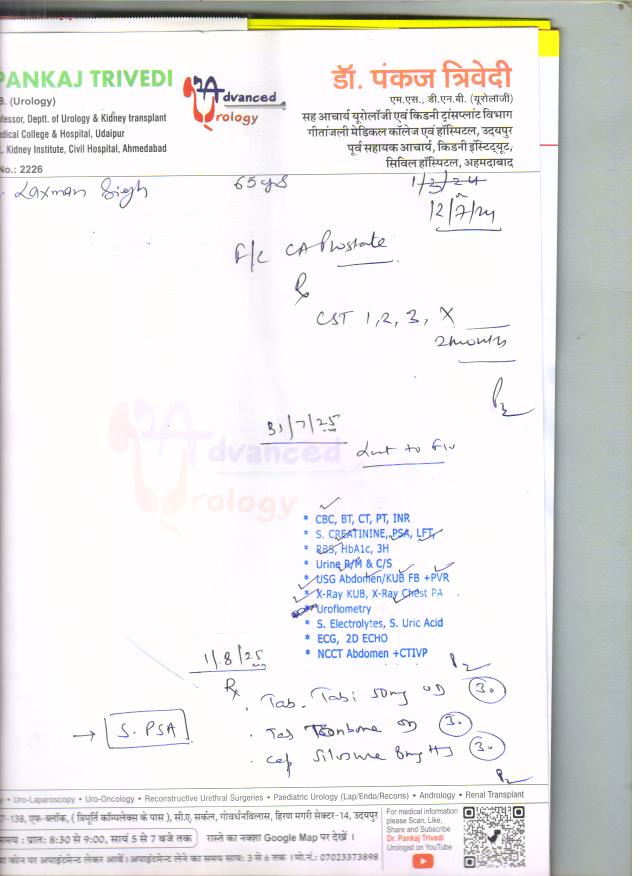 PANKAJ TRIVEDI
B. (Urology)
fessor, Deptt. of Urology & Kidney transplant
dical College & Hospital, Udaipur
. Kidney Institute, Civil Hospital, Ahmedabad
No.: 2226
Advanced
Urology
डॉ. पंकज त्रिवेदी
एम.एस., डी.एन.बी. (यूरोलॉजी)
सह आचार्य यूरोलॉजी एवं किडनी ट्रांसप्लांट विभाग
गीतांजली मेडिकल कॉलेज एवं हॉस्पिटल, उदयपुर
पूर्व सहायक आचार्य, किडनी इंस्टिट्यूट,
सिविल हॉस्पिटल, अहमदाबाद
Laxman Singh 65 yrs
12/7/24
CA Prostate
Rx
CST 1, 2, 3, X
2 months
31/7/25
Advanced
Urology
* CBC, BT, CT, PT, INR
* S. CREATININE, PSA, LFT,
* RBS, HbA1c, 3H
* Urine R/M & C/S
* USG Abdomen/KUB FB +PVR
* X-Ray KUB, X-Ray Chest PA
* Uroflometry
* S. Electrolytes, S. Uric Acid
* ECG, 2D ECHO
* NCCT Abdomen +CTIVP
1/8/25
Rx
. Tab. Tabi 50mg OD 30
→ S. PSA
. Tab OD 30
. Cap 8mg HS 30
• Uro-Laparoscopy • Uro-Oncology • Reconstructive Urethral Surgeries • Paediatric Urology (Lap/Endo/Recons) • Andrology • Renal Transplant
7-138, एफ-ब्लॉक, ( त्रिमूर्ति कॉम्पलेक्स के पास ), सी.ए. सर्कल, गोवर्धनविलास, हिरण मगरी सेक्टर-14, उदयपुर
समय : प्रात: 8:30 से 9:00, सायं 5 से 7 बजे तक रास्ते का नक्शा Google Map पर देखें ।
फोन पर अपाइंटमेन्ट लेकर आवें। अपाइंटमेन्ट लेने का समय सायं: 3 से 6 तक । मो.नं.: 07023373898
For medical information
please Scan, Like,
Share and Subscribe
Dr. Pankaj Trivedi
Urologist on YouTube